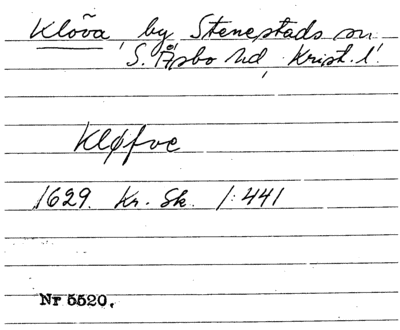 Klöva, by Stenestads sn
S. Åsbo hd, Krist. l.
Kløfve
1629. Kr. Sk. 1:441
Nr 5520.